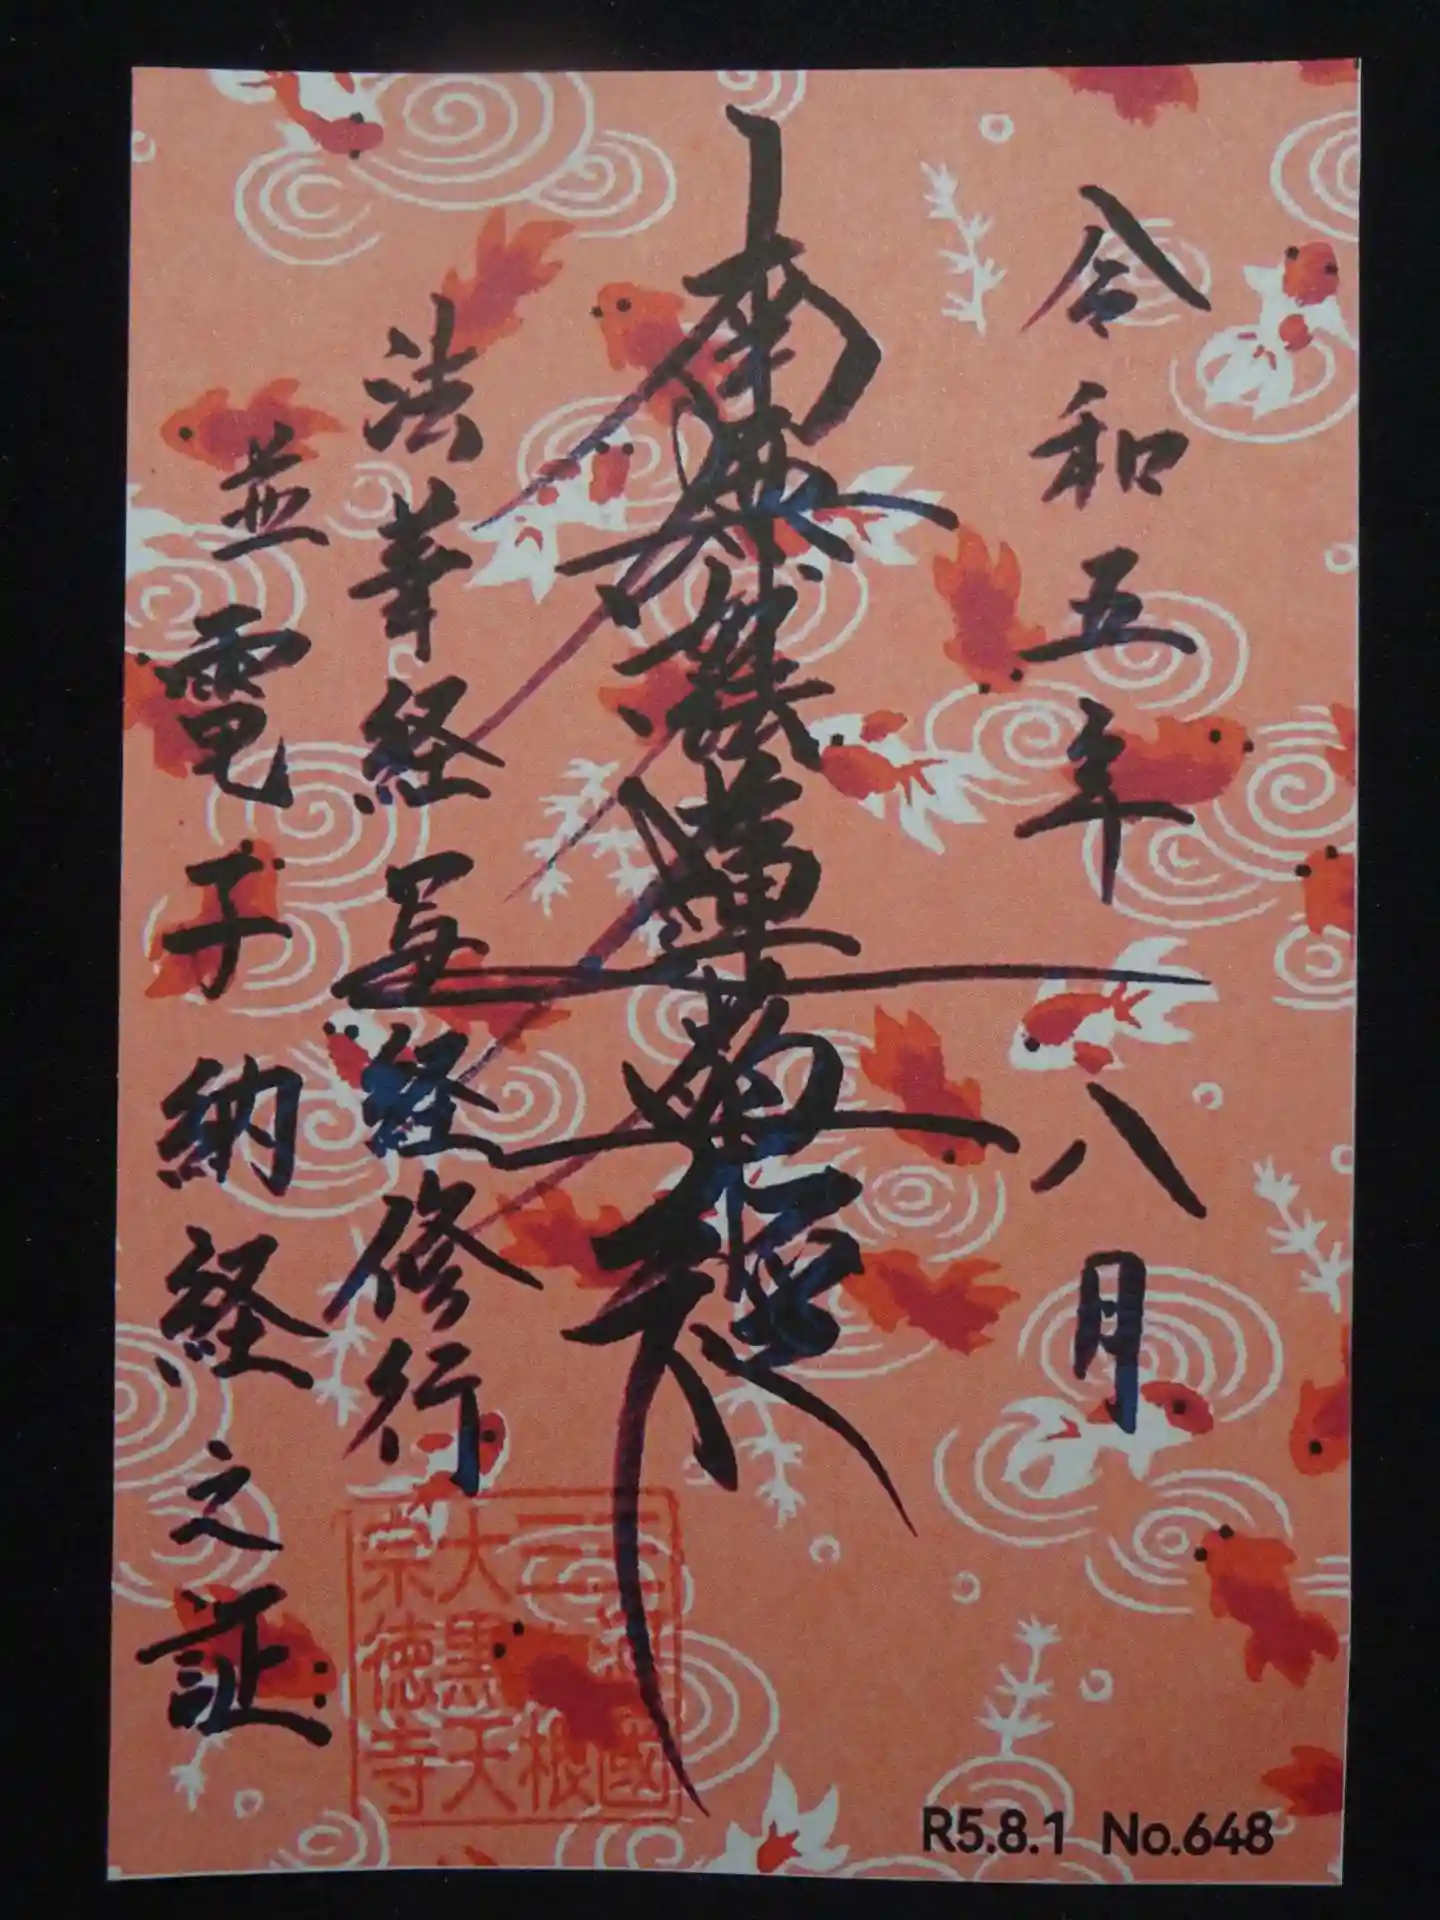 令和五年八月
南無妙法蓮華経
法華経写経修行
並電子納経之証
大黒天
宗徳寺
R5.8.1 No.648